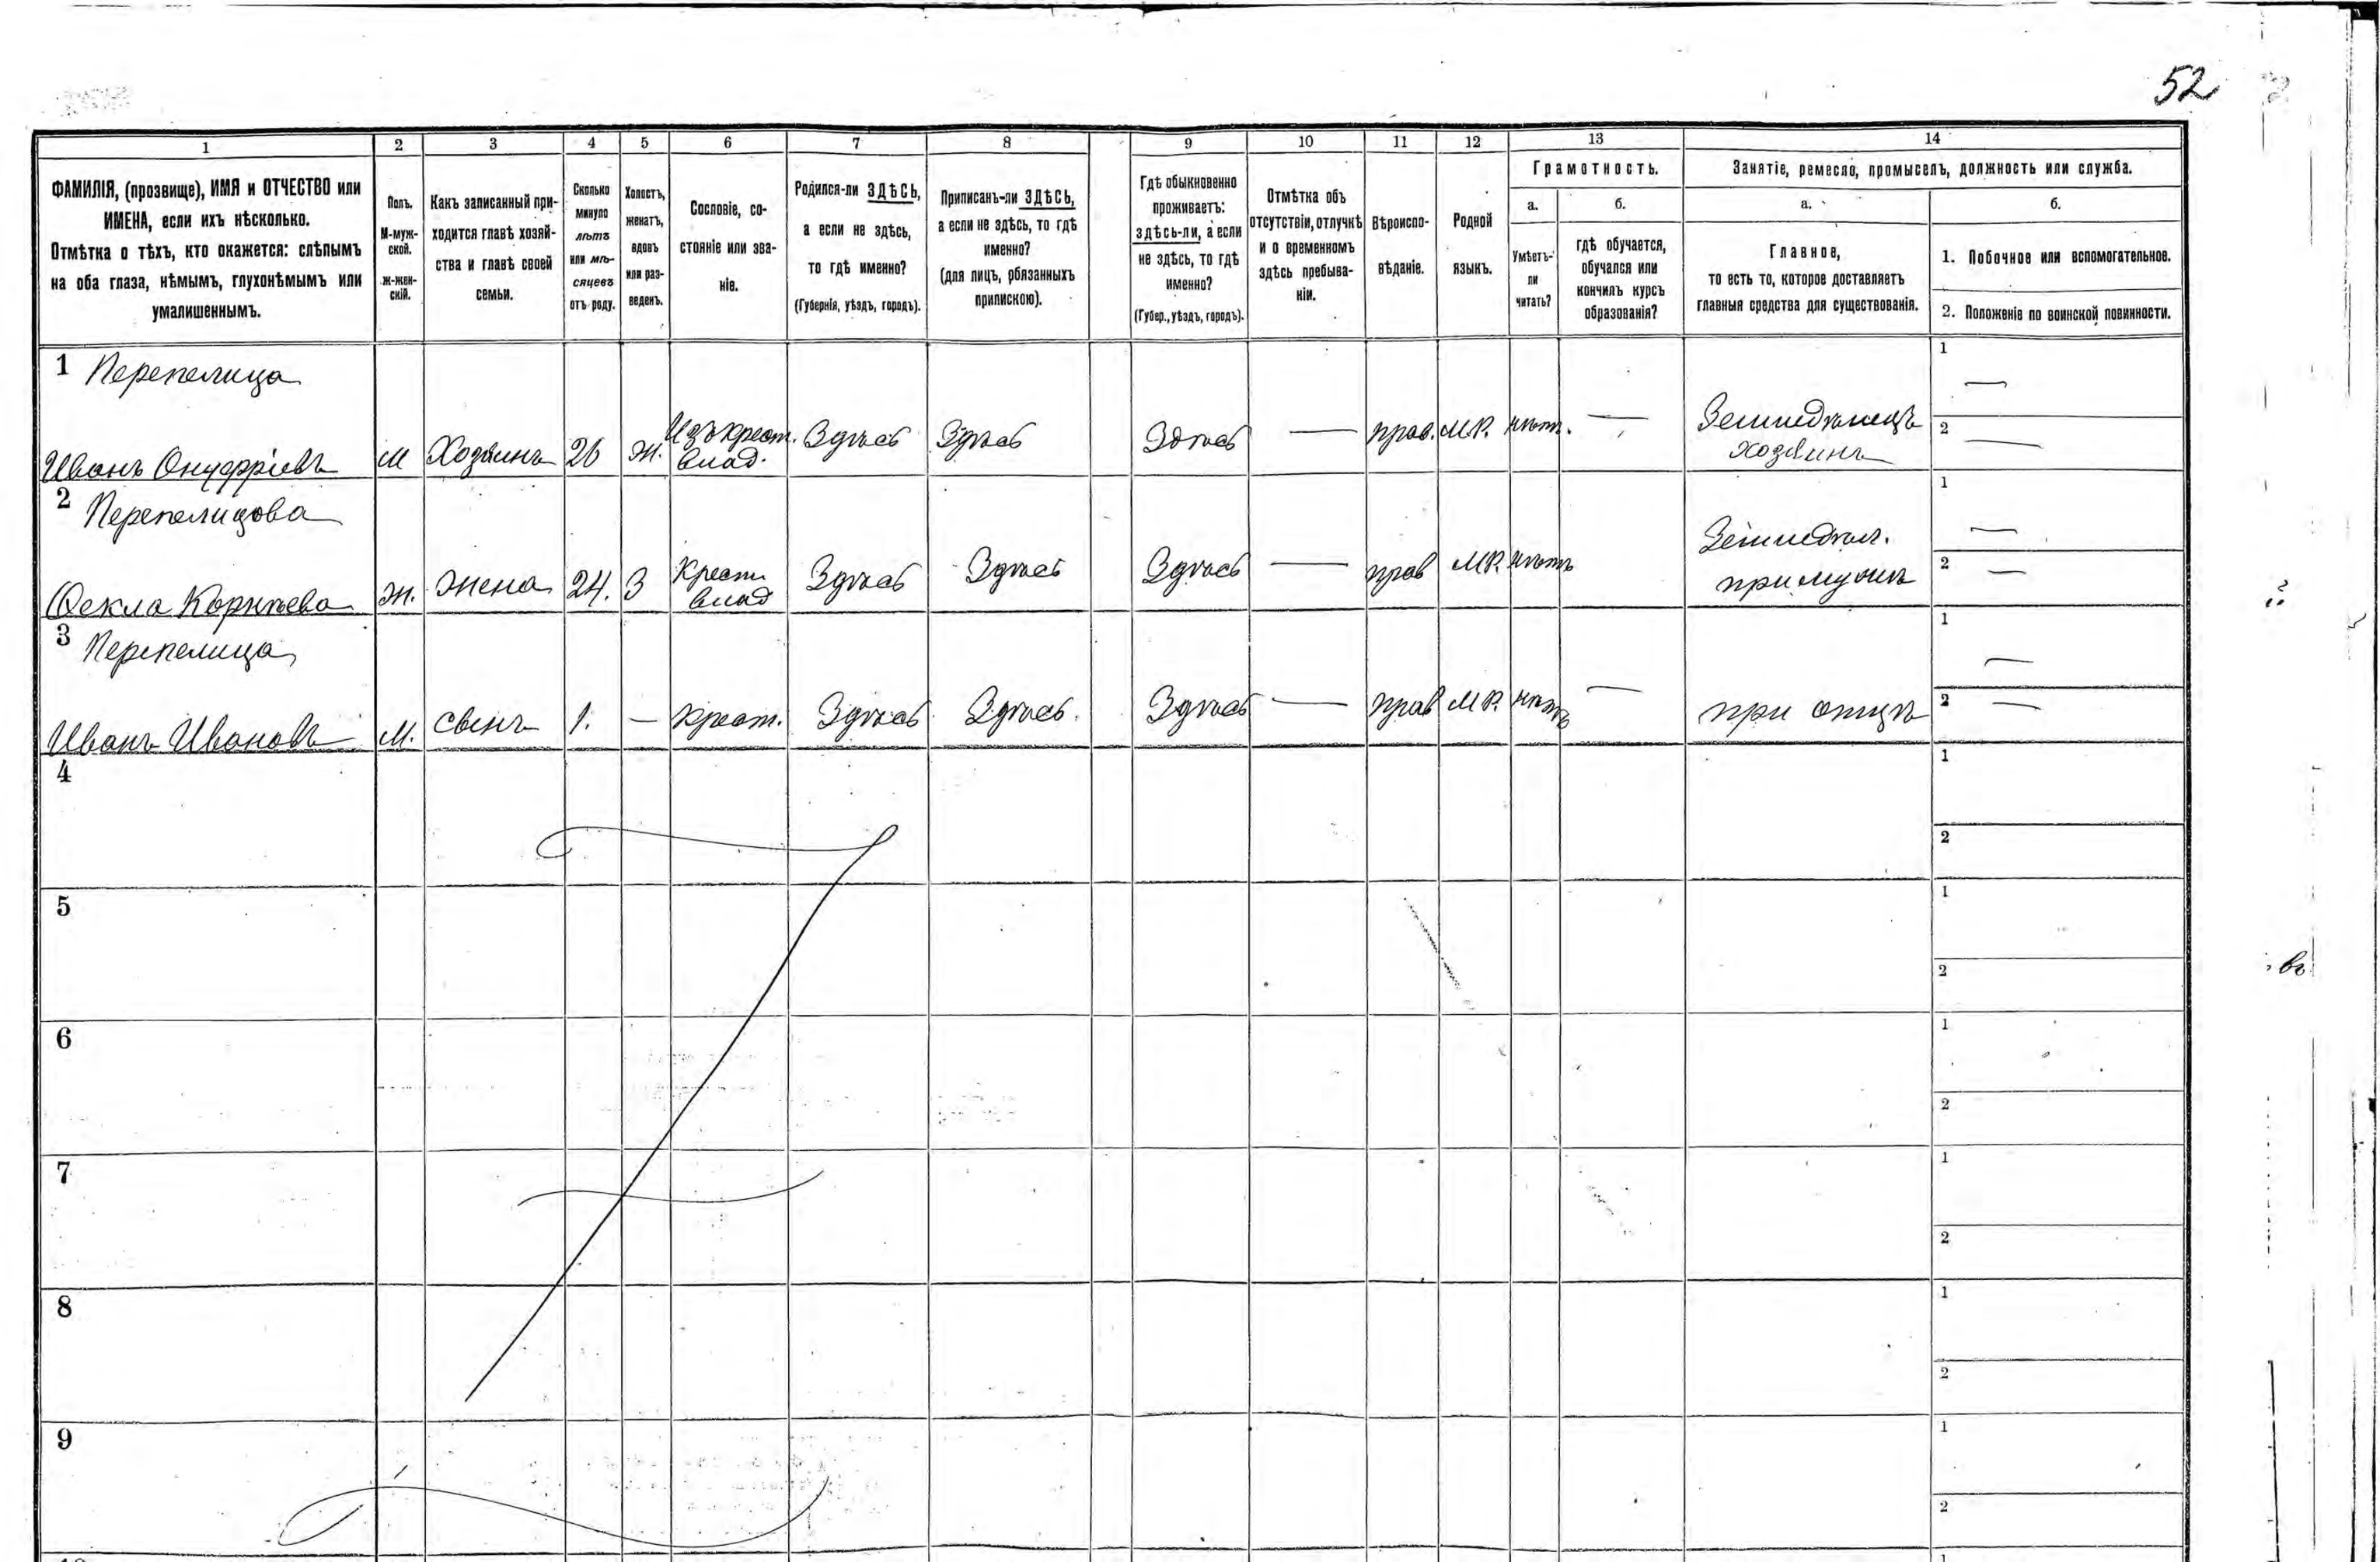 52
1 2 3 4 5 6 7 8 9 10 11 12 13 14
ФАМИЛІЯ, (прозвище), ИМЯ и ОТЧЕСТВО или
ИМЕНА, если ихъ нѣсколько.
Отмѣтка о тѣхъ, кто окажется: слѣпымъ
на оба глаза, нѣмымъ, глухонѣмымъ или
умалишеннымъ.
Полъ.
М-муж-
ской.
ж-жен-
скій.
Какъ записанный при-
ходится главѣ хозяй-
ства и главѣ своей
семьи.
Сколько
минуло
лѣтъ
или мѣ-
сяцевъ
отъ роду.
Холостъ,
женатъ,
вдовъ
или раз-
веденъ.
Сословіе, со-
стояніе или зва-
ніе.
Родился-ли ЗДѢСЬ,
а если не здѣсь,
то гдѣ именно?
(Губернія, уѣздъ, городъ).
Приписанъ-ли ЗДѢСЬ,
а если не здѣсь, то гдѣ
именно?
(для лицъ, обязанныхъ
припискою).
Гдѣ обыкновенно
проживаетъ:
здѣсь-ли, а если
не здѣсь, то гдѣ
именно?
(Губер., уѣздъ, городъ).
Отмѣтка объ
отсутствіи, отлучкѣ
и о временномъ
здѣсь пребыва-
ніи.
Вѣроиспо-
вѣданіе.
Родной
языкъ.
Грамотность.
а.
Умѣетъ-
ли
читать?
б.
гдѣ обучается,
обучался или
кончилъ курсъ
образованія?
Занятіе, ремесло, промыселъ, должность или служба.
а.
Главное,
то есть то, которое доставляетъ
главныя средства для существованія.
б.
1. Побочное или вспомогательное.
2. Положеніе по воинской повинности.
1 Перепелица
Иванъ Онуфріевъ М Хозяинъ 26 ж. Изъ крест. влад. Здѣсь Здѣсь Здѣсь — прав. М.Р. нѣт. — Земледѣлецъ хозяинъ
1 —
2 —
2 Перепелицова
Ѳекла Корнѣева ж. жена 24. З Крест. влад Здѣсь Здѣсь Здѣсь — прав М.Р. нѣтъ Земледѣл. при мужѣ
1 —
2 —
3 Перепелица
Иванъ Ивановъ М. сынъ 1. — крест. Здѣсь Здѣсь. Здѣсь — прав М.Р. нѣтъ — при отцѣ
1 —
2 —
4
1
2
5
1
2
6
1
2
7
1
2
8
1
2
9
1
2
1